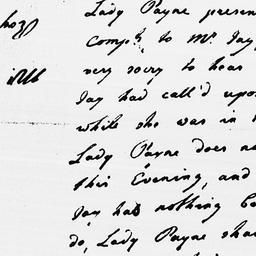 Lady Payne presen
Compts. to Mr. Jay
very sorry to hear
Jay had call'd upo
while she was in
Lady Payne does no
this Evening, and
Jay has nothing be
do, Lady Payne sha